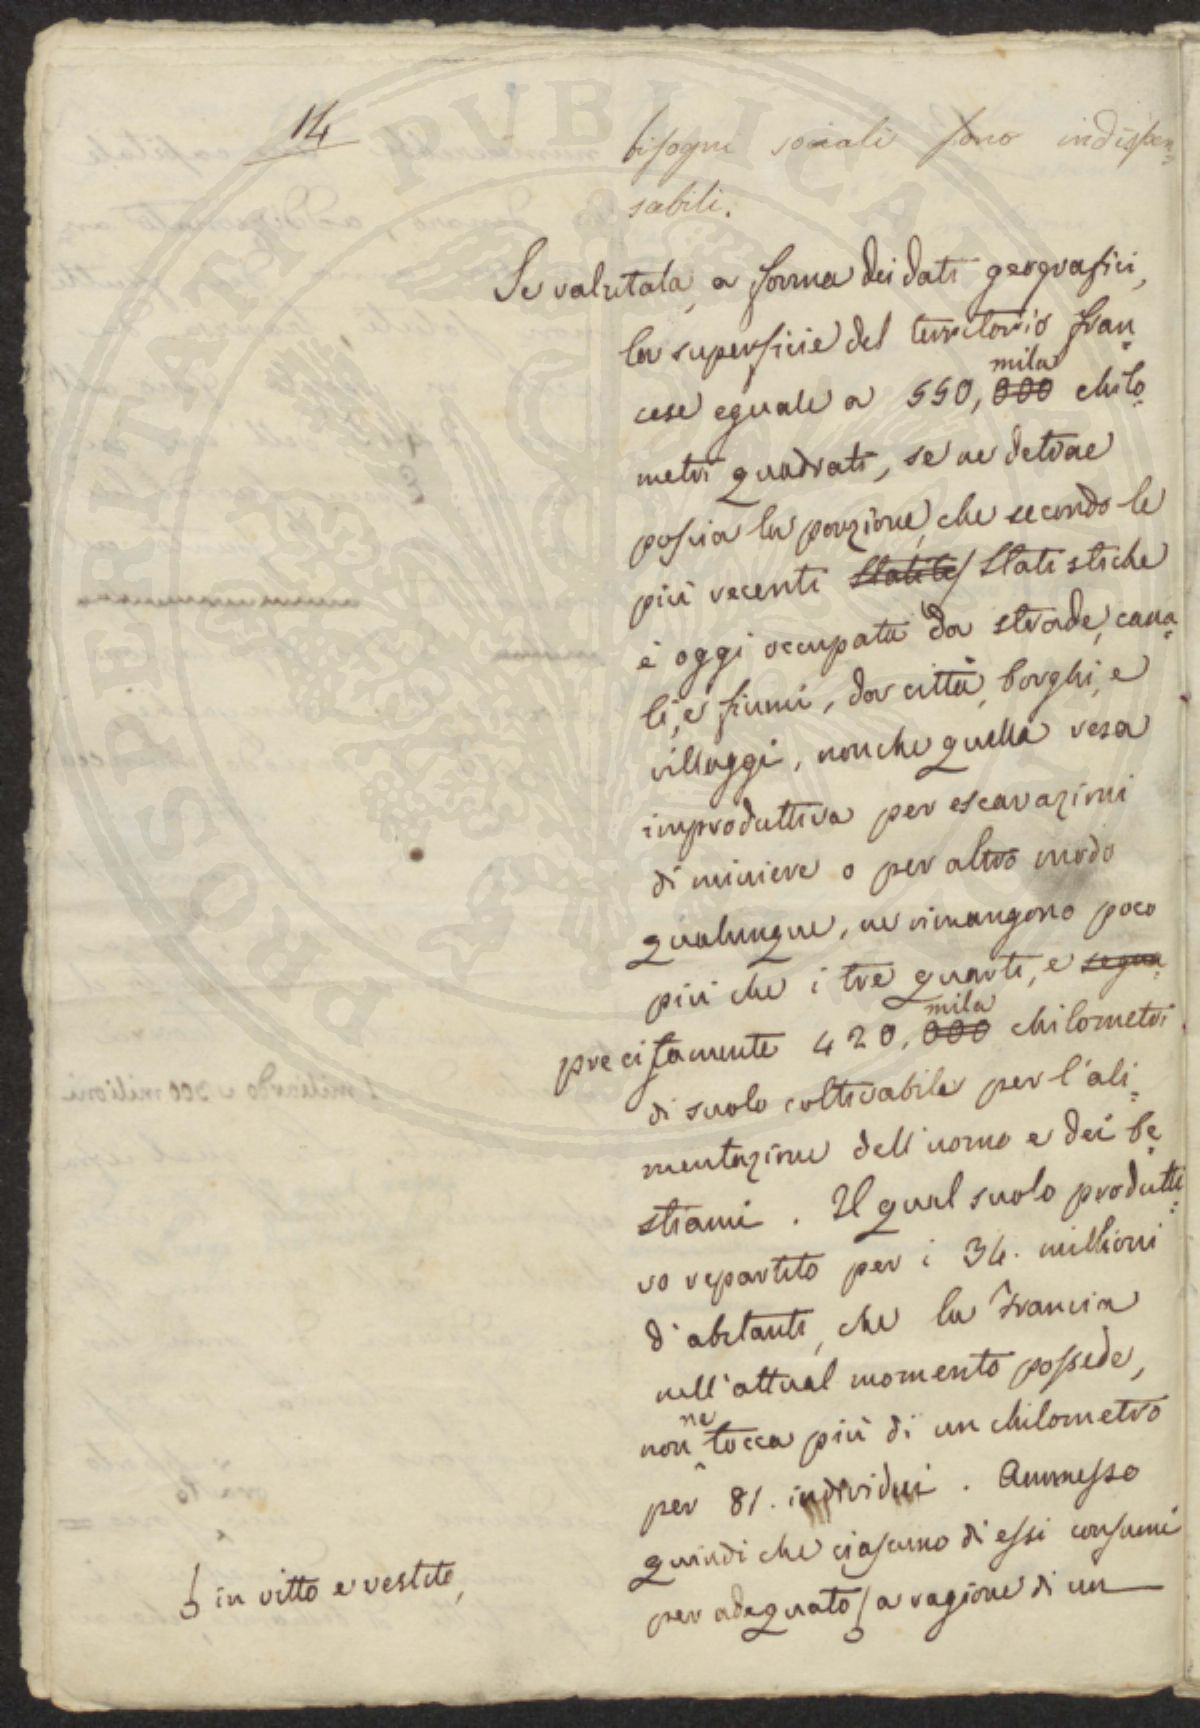 14
bisogni sociali sono indispen=
sabili.
Se valutata, a forma dei dati geografici,
la superficie del territorio fran=
cese eguale a 550, mila 000 chilo=
metri quadrati, se ne detrae
poscia la porzione, che secondo le
più recenti Statite Statistiche
è oggi occupata da strade, cana=
li, e fiumi, da città, borghi, e
villaggi, nonche quella resa
improduttiva per escavazioni
di miniere o per altro modo
qualunque, ne rimangono poco
più che i tre quarti, e segna=
precisamente 420, mila 000 chilometri
di suolo coltivabile per l'ali=
mentazione dell'uomo e dei be=
stiami. Il qual suolo produtti=
vo repartito per i 34. millioni
d'abitanti, che la Francia
nell'attual momento possede,
non ne tocca più di un chilometro
per 81. individui. Ammesso
quindi che ciascuno di essi consumi
per adequato a ragione di un
in vitto e vestito,